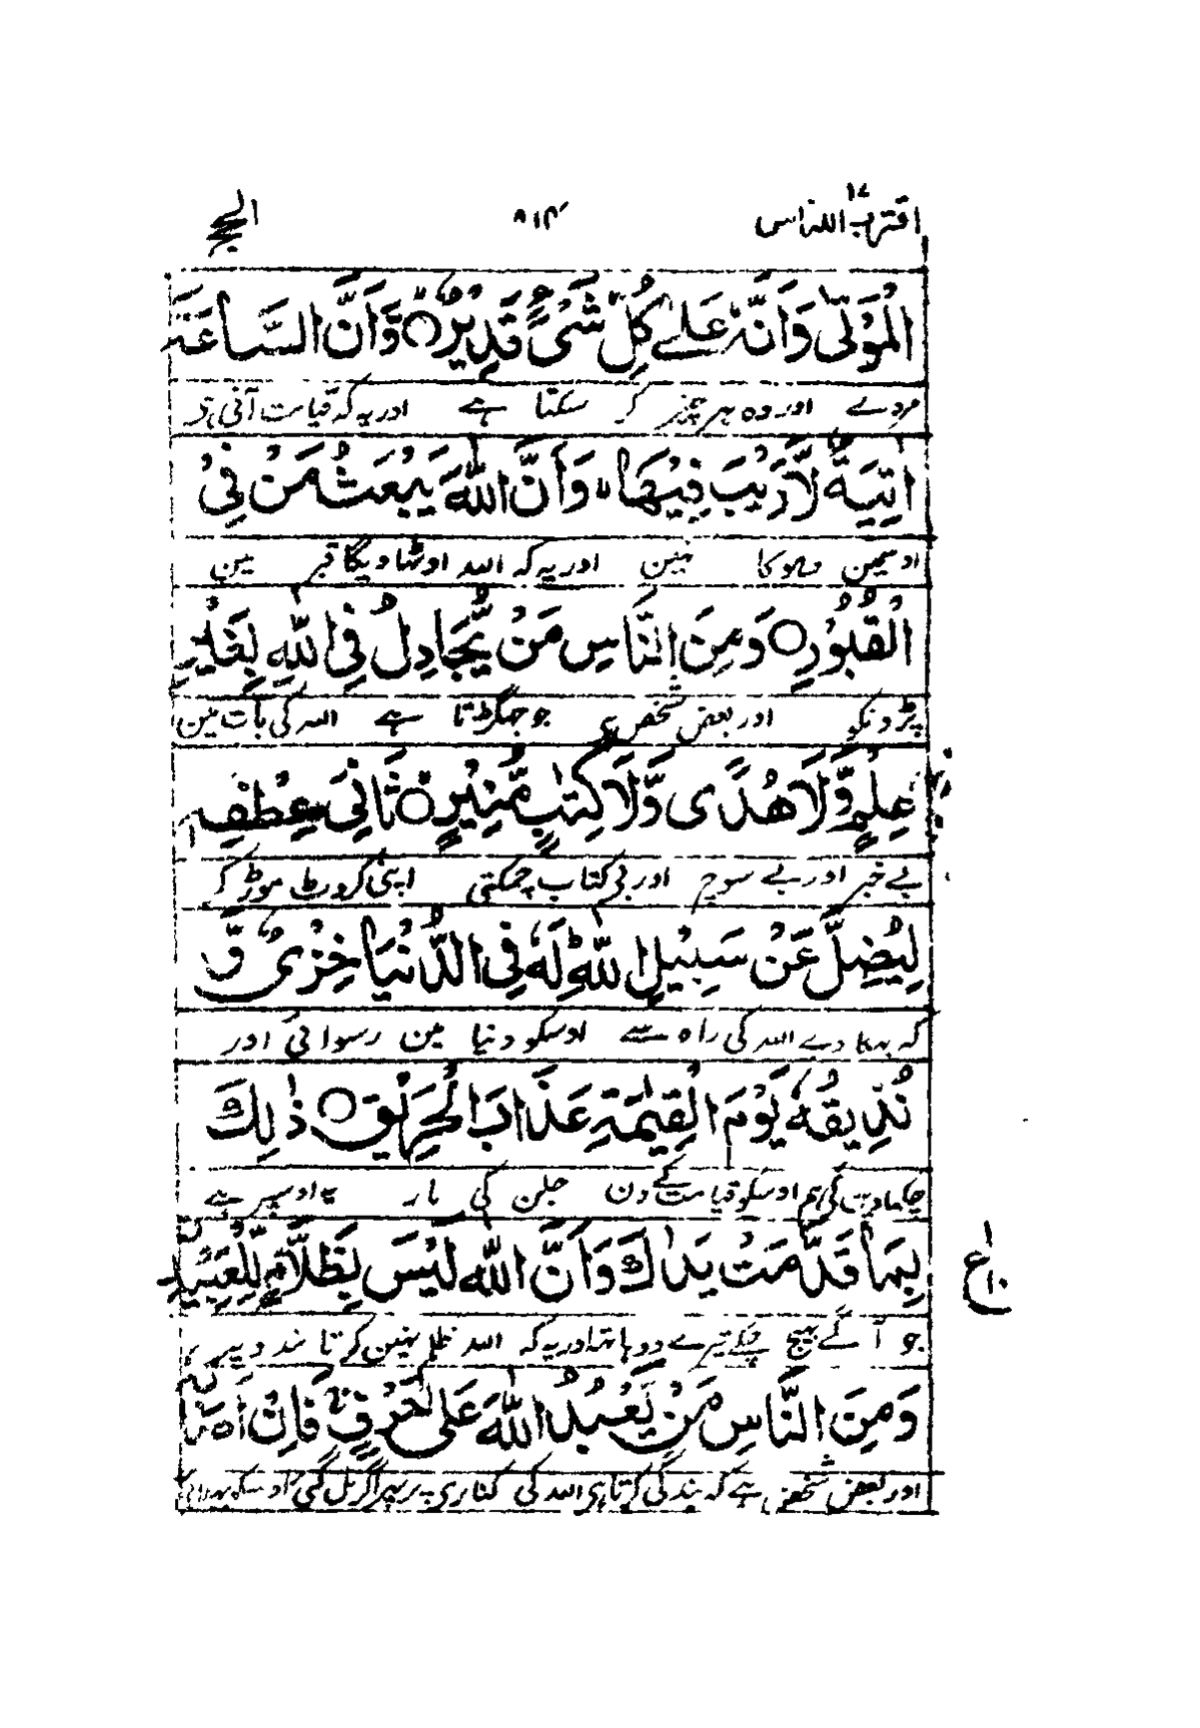 اقترب للناس ١٧
٥١٣
الحج
الْمَوْتٰى وَاَنَّهٗ عَلٰى كُلِّ شَىْءٍ قَدِيْرٌ ۙ وَّاَنَّ السَّاعَةَ
مردے اور وہ ہر چیز کر سکتا ہے اور یہ کہ قیامت آنی ہی
اٰتِيَةٌ لَّا رَيْبَ فِيْهَا ۙ وَاَنَّ اللّٰهَ يَبْعَثُ مَنْ فِى
اوسمین دھوکا نہین اور یہ کہ اللہ اوٹھاویگا قبر مین
الْقُبُوْرِ ۝ وَمِنَ النَّاسِ مَنْ يُّجَادِلُ فِى اللّٰهِ بِغَيْرِ
پڑونکو اور بعض شخص ہی جو جھگڑتا ہے اللہ کی بات مین
عِلْمٍ وَّلَا هُدًى وَّلَا كِتٰبٍ مُّنِيْرٍ ۙ ثَانِىَ عِطْفِهٖ
بے خبر اور بے سوجھ اور بی کتاب چمکتی اپنی کروٹ موڑ کر
لِيُضِلَّ عَنْ سَبِيْلِ اللّٰهِ ؕ لَهٗ فِى الدُّنْيَا خِزْىٌ وَّ
کہ بہکا دے اللہ کی راہ سے اوسکو دنیا مین رسوائی اور
نُذِيْقُهٗ يَوْمَ الْقِيٰمَةِ عَذَابَ الْحَرِيْقِ ۝ ذٰلِكَ
چکھا دینگی ہم اوسکو قیامت کے دن جلن کی مار یہ اوسپر ہے
بِمَا قَدَّمَتْ يَدٰكَ وَاَنَّ اللّٰهَ لَيْسَ بِظَلَّامٍ لِّلْعَبِيْدِ
ع ١٠
جو آگے بھیج چکے تیرے دو ہاتھ اور یہ کہ اللہ ظلم نہین کرتا بندو پر
وَمِنَ النَّاسِ مَنْ يَّعْبُدُ اللّٰهَ عَلٰى حَرْفٍ ۚ فَاِنْ اَصَا
اور بعض شخص ہے کہ بندگی کرتا ہی اللہ کی کناری پر پھر اگر مل گئی اوسکو بھلائی